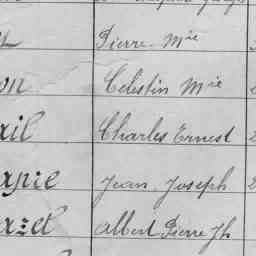 Pierre Mie
on Celestin Mie
ail Charles Ernest
apie Jean Joseph
azet Albert Pierre Jh